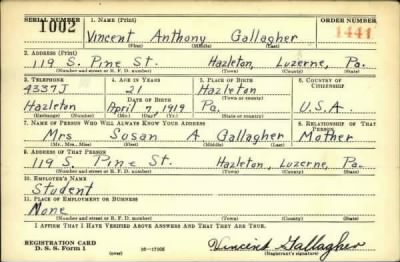 SERIAL NUMBER 1. NAME (Print) ORDER NUMBER
1002 Vincent Anthony Gallagher 1441
(First) (Middle) (Last)
2. ADDRESS (Print)
119 S. Pine St. Hazleton, Luzerne, Pa.
(Number and street or R. F. D. number) (Town) (County) (State)
3. TELEPHONE 4. AGE IN YEARS 5. PLACE OF BIRTH 6. COUNTRY OF CITIZENSHIP
4337J 21 Hazleton
(Town or county)
DATE OF BIRTH
Hazleton April 7, 1919 Pa. U.S.A.
(Exchange) (Number) (Mo.) (Day) (Yr.) (State or country)
7. NAME OF PERSON WHO WILL ALWAYS KNOW YOUR ADDRESS 8. RELATIONSHIP OF THAT PERSON
Mrs Susan A Gallagher Mother
(Mr., Mrs., Miss) (First) (Middle) (Last)
9. ADDRESS OF THAT PERSON
119 S. Pine St. Hazleton, Luzerne, Pa.
(Number and street or R. F. D. number) (Town) (County) (State)
10. EMPLOYER'S NAME
Student
11. PLACE OF EMPLOYMENT OR BUSINESS
None
(Number and street or R. F. D. number) (Town) (County) (State)
I AFFIRM THAT I HAVE VERIFIED ABOVE ANSWERS AND THAT THEY ARE TRUE.
REGISTRATION CARD
D. S. S. Form 1 (over) Vincent Gallagher
(Registrant's signature)